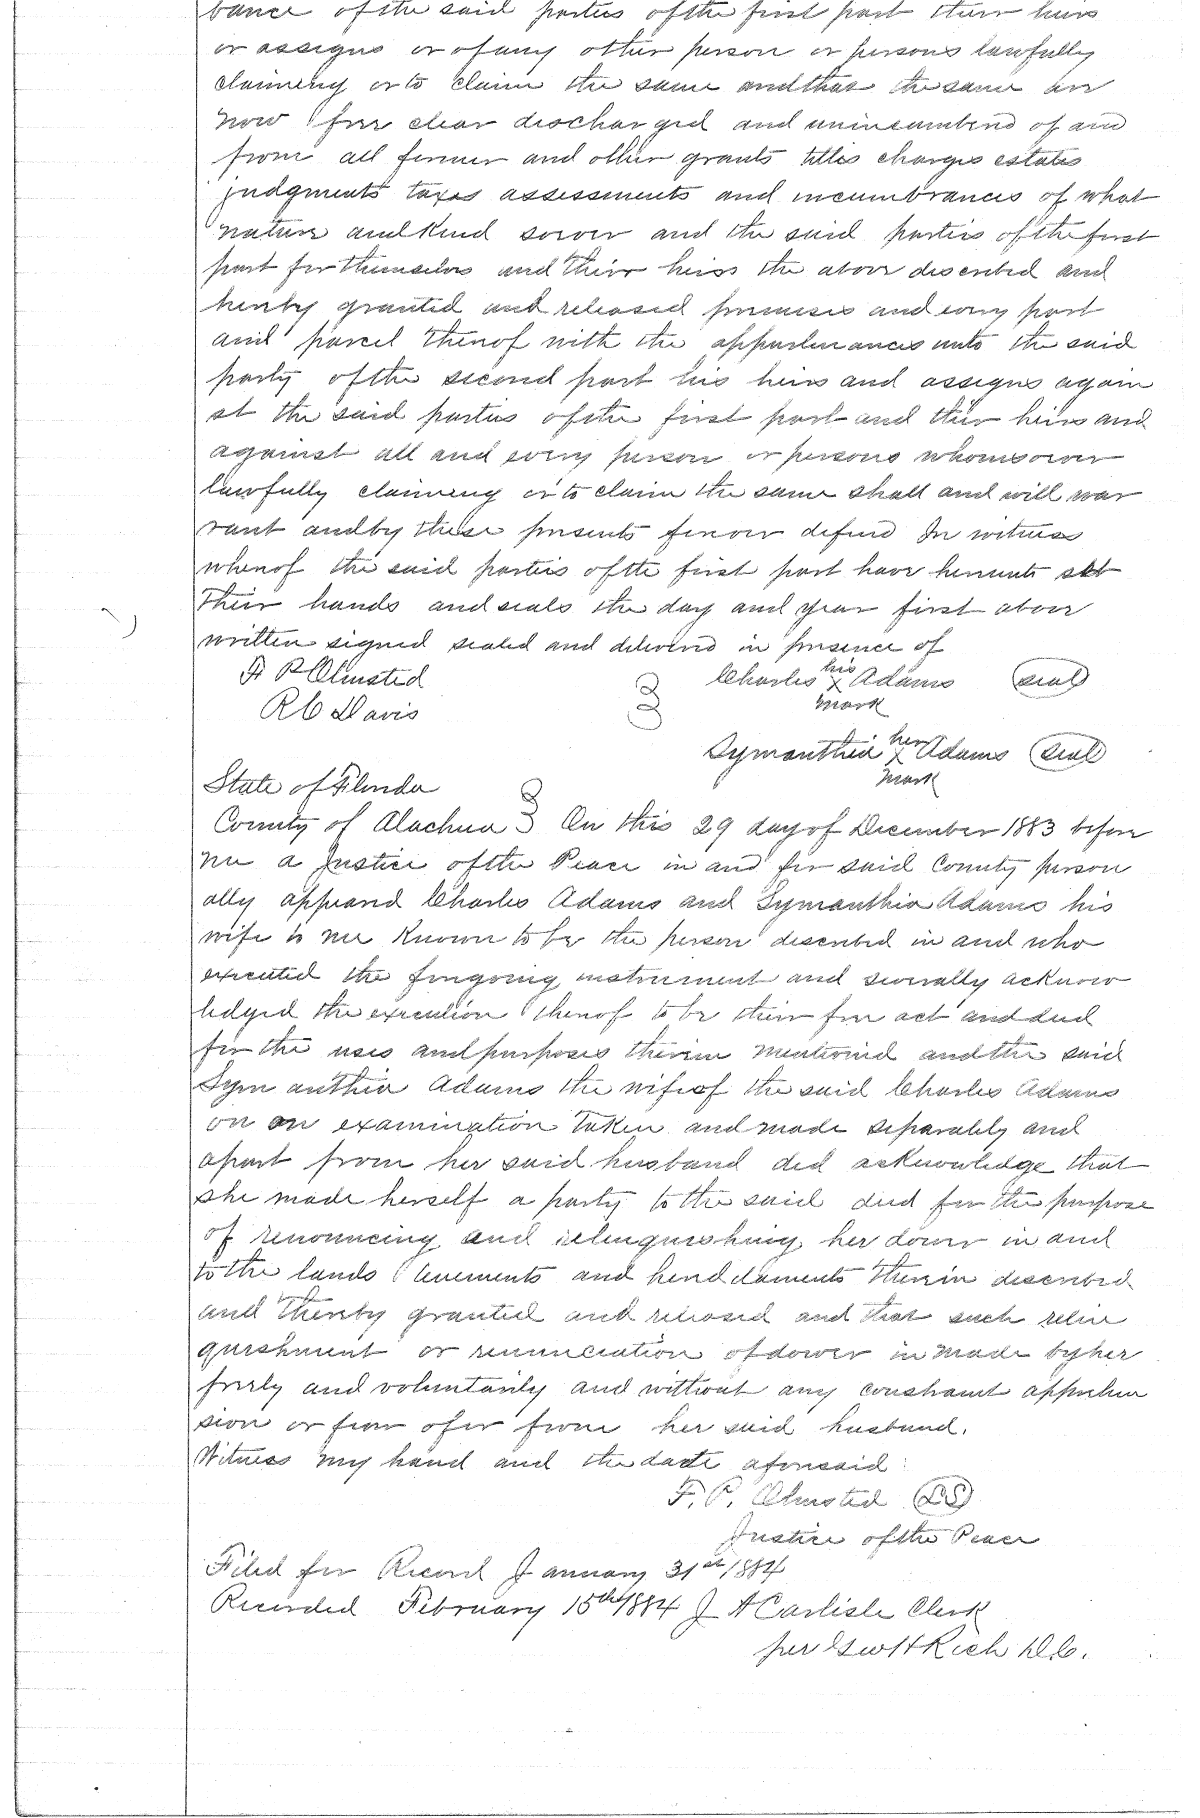 bance of the said parties of the first part their heirs
or assigns or of any other person or persons lawfully
claiming or to claim the same and that the same are
now free clear discharged and unincumbered of and
from all former and other grants titles charges estates
judgments taxes assessments and incumbrances of what
nature and kind soever and the said parties of the first
part for themselves and their heirs the above described and
hereby granted and released premises and every part
and parcel thereof with the appurtenances unto the said
party of the second part his heirs and assigns again
st the said parties of the first part and their heirs and
against all and every person or persons whomsoever
lawfully claiming or to claim the same shall and will war
rant and by these presents forever defend In witness
whereof the said parties of the first part have hereunto set
Their hands and seals the day and year first above
written signed sealed and delivered in presence of
F P Olmsted
Charles his X mark Adams seal
R C Davis
Symanthia her X mark Adams seal
State of Florida
County of Alachua } On this 29 day of December 1883 before
me a Justice of the Peace in and for said County person
ally appeard Charles Adams and Symanthia Adams his
wife to me Known to be the person described in and who
executed the foregoing instrument and severally acknow
ledged the execution thereof to be their free act and deed
for the uses and purposes therein mentioned and the said
Symanthia Adams the wife of the said Charles Adams
on an examination taken and made separately and
apart from her said husband did acknowledge that
she made herself a party to the said deed for the purpose
of renouncing and relinquishing her dower in and
to the lands tenements and hereddaments therein described
and thereby granted and released and that such relin
quishment or renunciation of dower in made by her
freely and voluntarily and without any constraint apprehen
sion or fear of or from her said husband.
Witness my hand and the date aforesaid
F. P. Olmsted (LS)
Justice of the Peace
Filed for Record January 31st 1884
Recorded February 15th 1884 J A Carlisle Clerk
per Geo H Rich D.C.